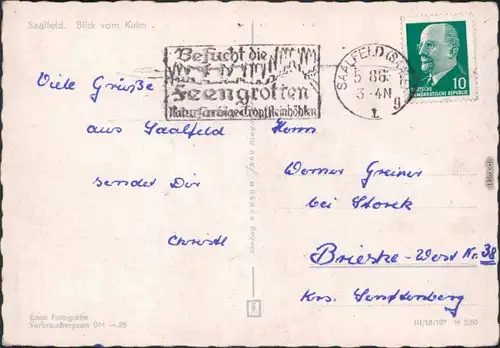 Saalfeld. Blick vom Kulm
Besucht die
Feengrotten
Naturfarbige Tropfsteinhöhlen
SAALFELD (SAALE)
3-4N
10
DEUTSCHE
DEMOKRATISCHE REPUBLIK
Viele Grüße
aus Saalfeld
sendet Dir
Christl
Herrn
Werner Greiner
bei Storek
Brieske-West Nr. 38
Krs. Senftenberg
Echte Fotografie
Verbraucherpreis DM —.25
III/18/197 H 2/60